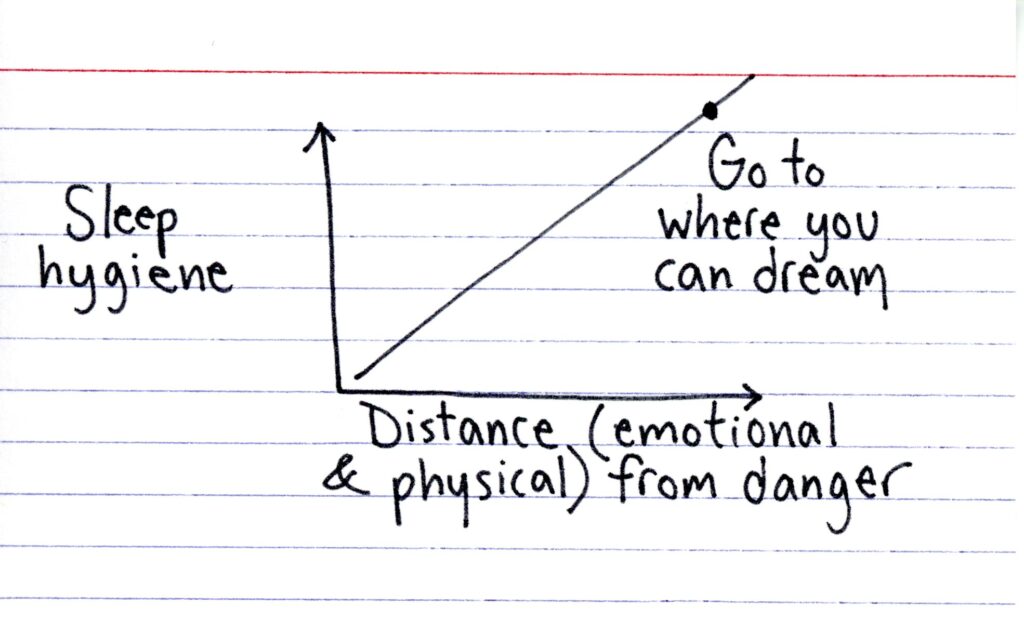 Sleep
hygiene
Go to
where you
can dream
Distance (emotional
& physical) from danger